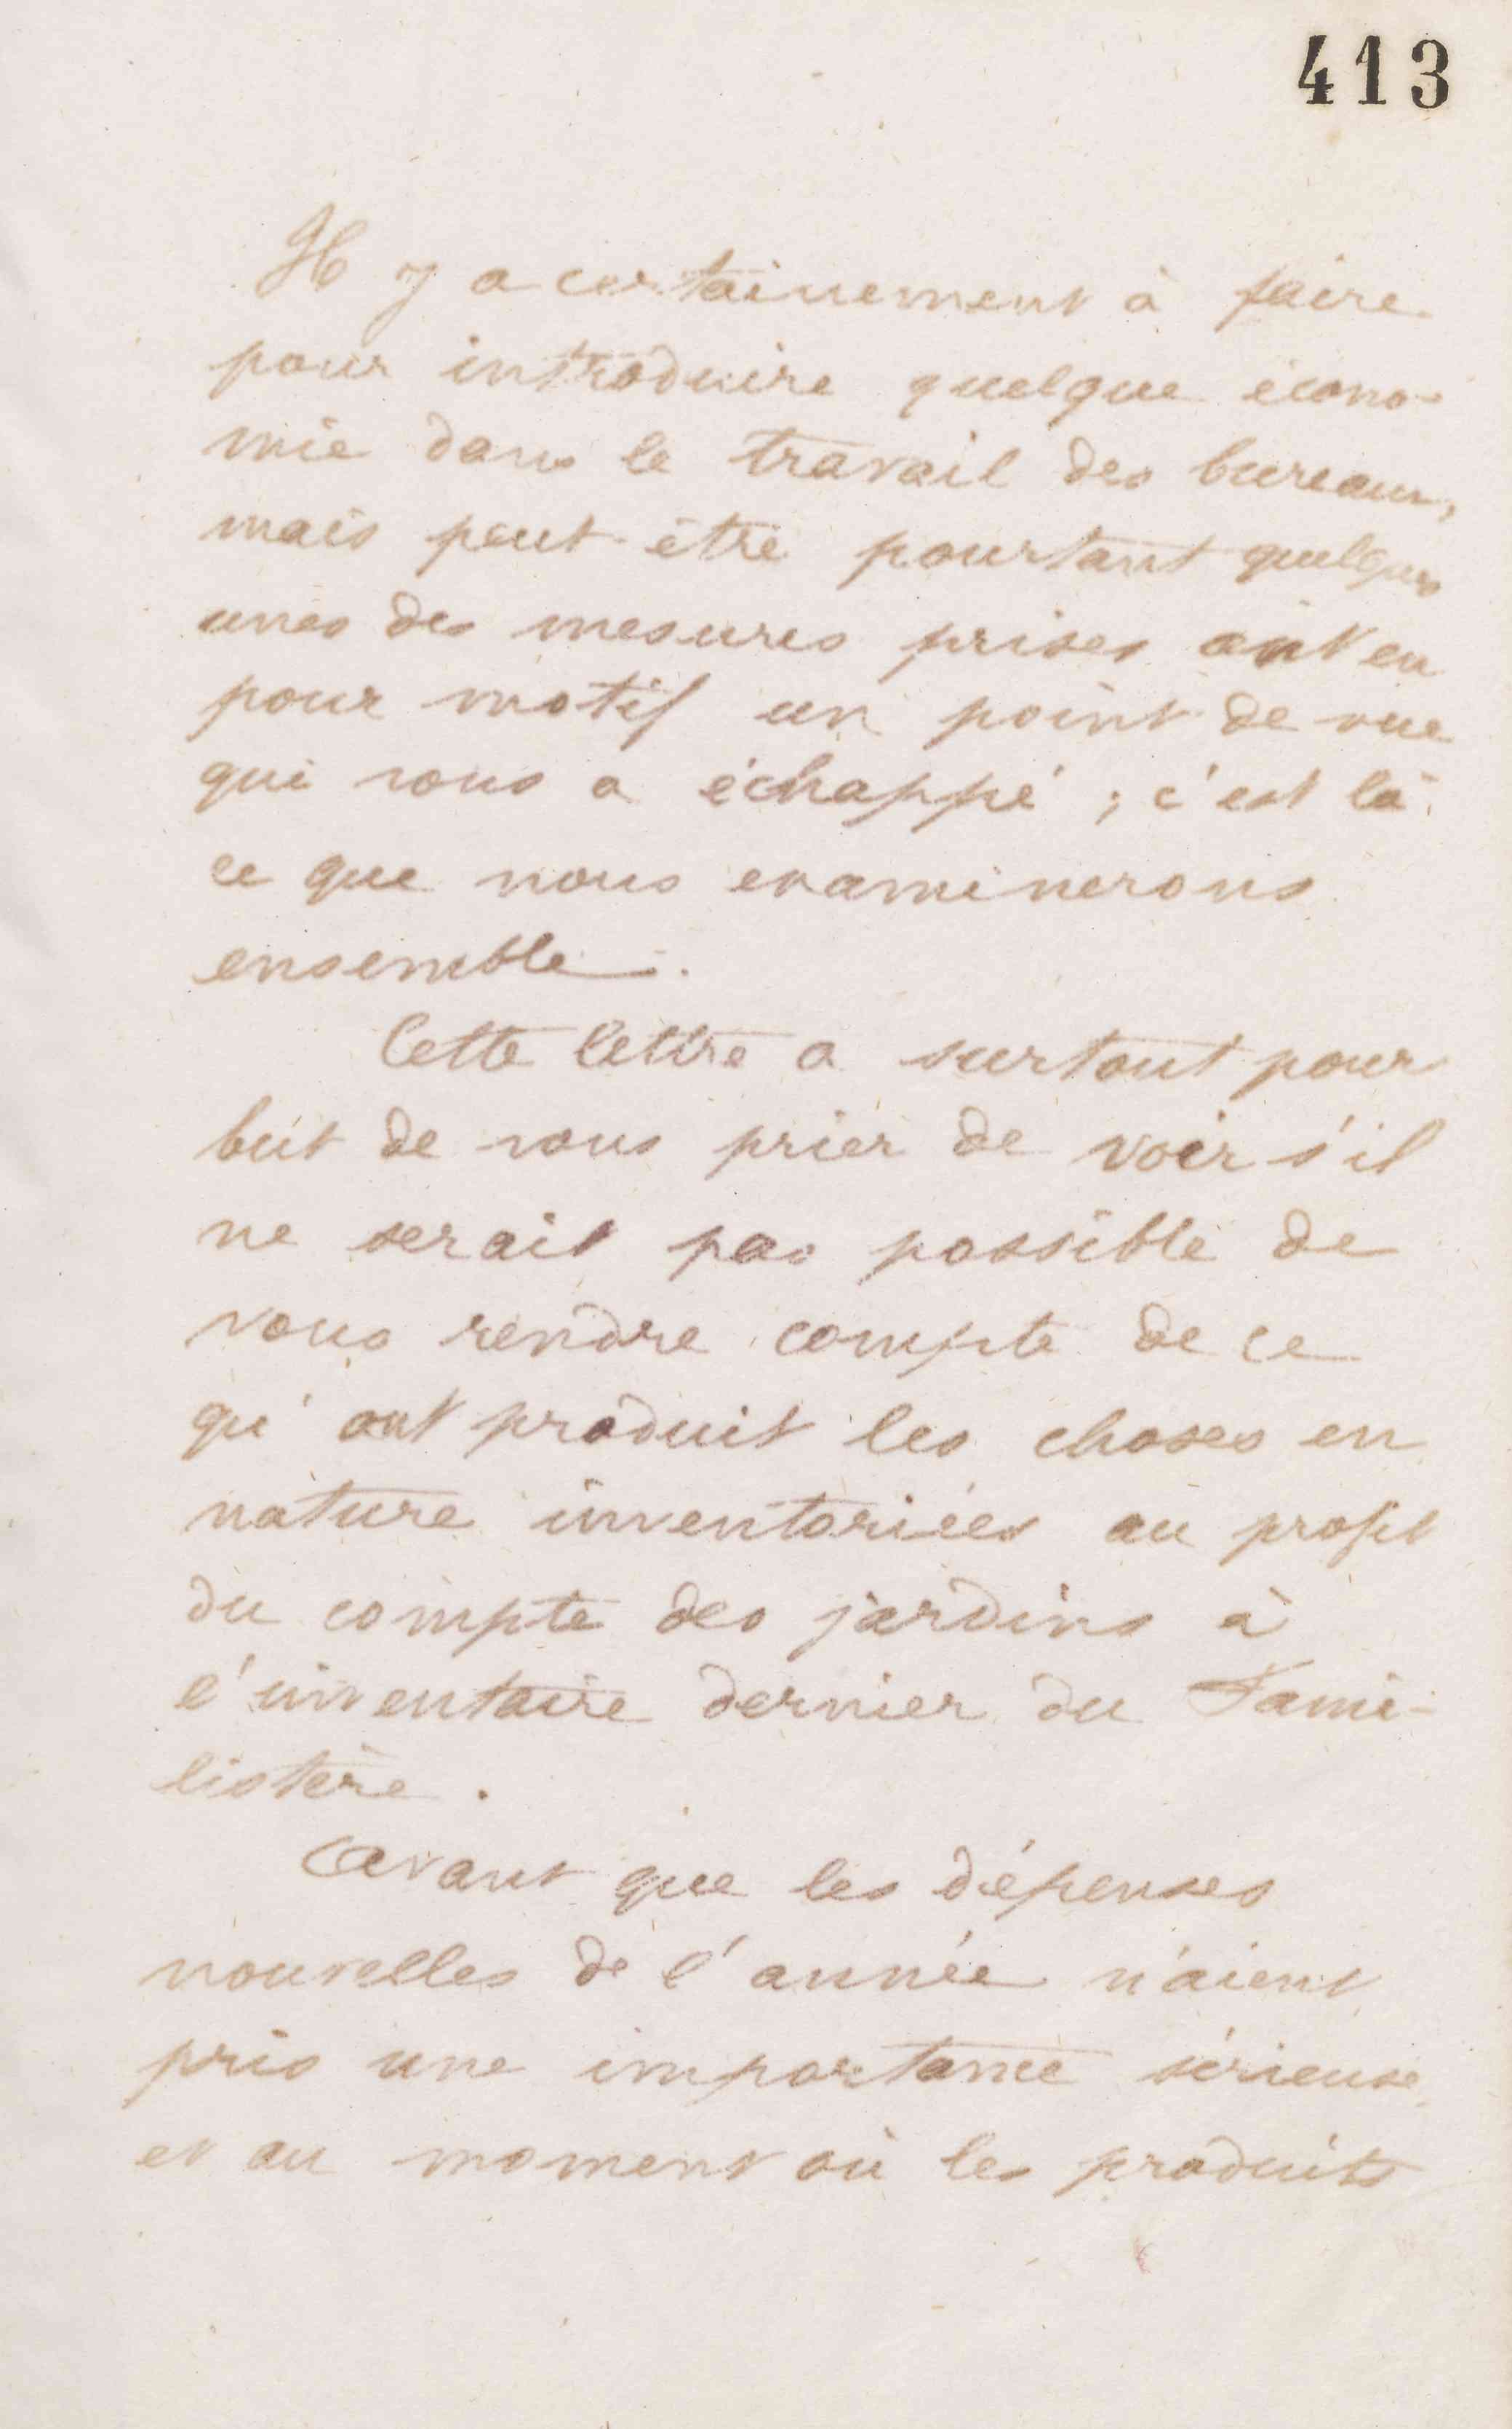 413
Il y a certainement à faire
pour introduire quelque écono-
mie dans le travail des bureaux,
mais peut-être pourtant quelques
unes des mesures prises ont eu
pour motif un point de vue
qui vous a échappé ; c'est là
ce que nous examinerons
ensemble.
Cette lettre a surtout pour
but de vous prier de voir s'il
ne serait pas possible de
vous rendre compte de ce
qu'ont produit les choses en
nature inventoriées au profit
du compte des jardins à
l'inventaire dernier du Fami-
listère.
Avant que les dépenses
nouvelles de l'année n'aient
pris une importance sérieuse
et au moment où les produits